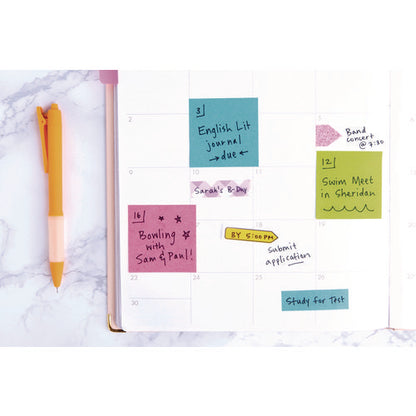 2
3
English Lit
journal
→due←
5
Band
concert
@ 7:30
9
10
11
12
Swim Meet
in Sheridan
Sarah's B-Day
16
Bowling
with
Sam & Paul!
17
18
BY 5:00 PM
Submit
application
23
24
25
26
Study for Test
30